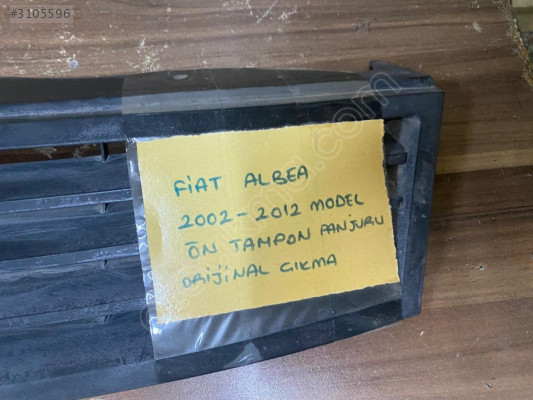 #3105596
FiAT ALBEA
2002-2012 MODEL
ÖN TAMPON PANJURU
ORiJiNAL CIKMA